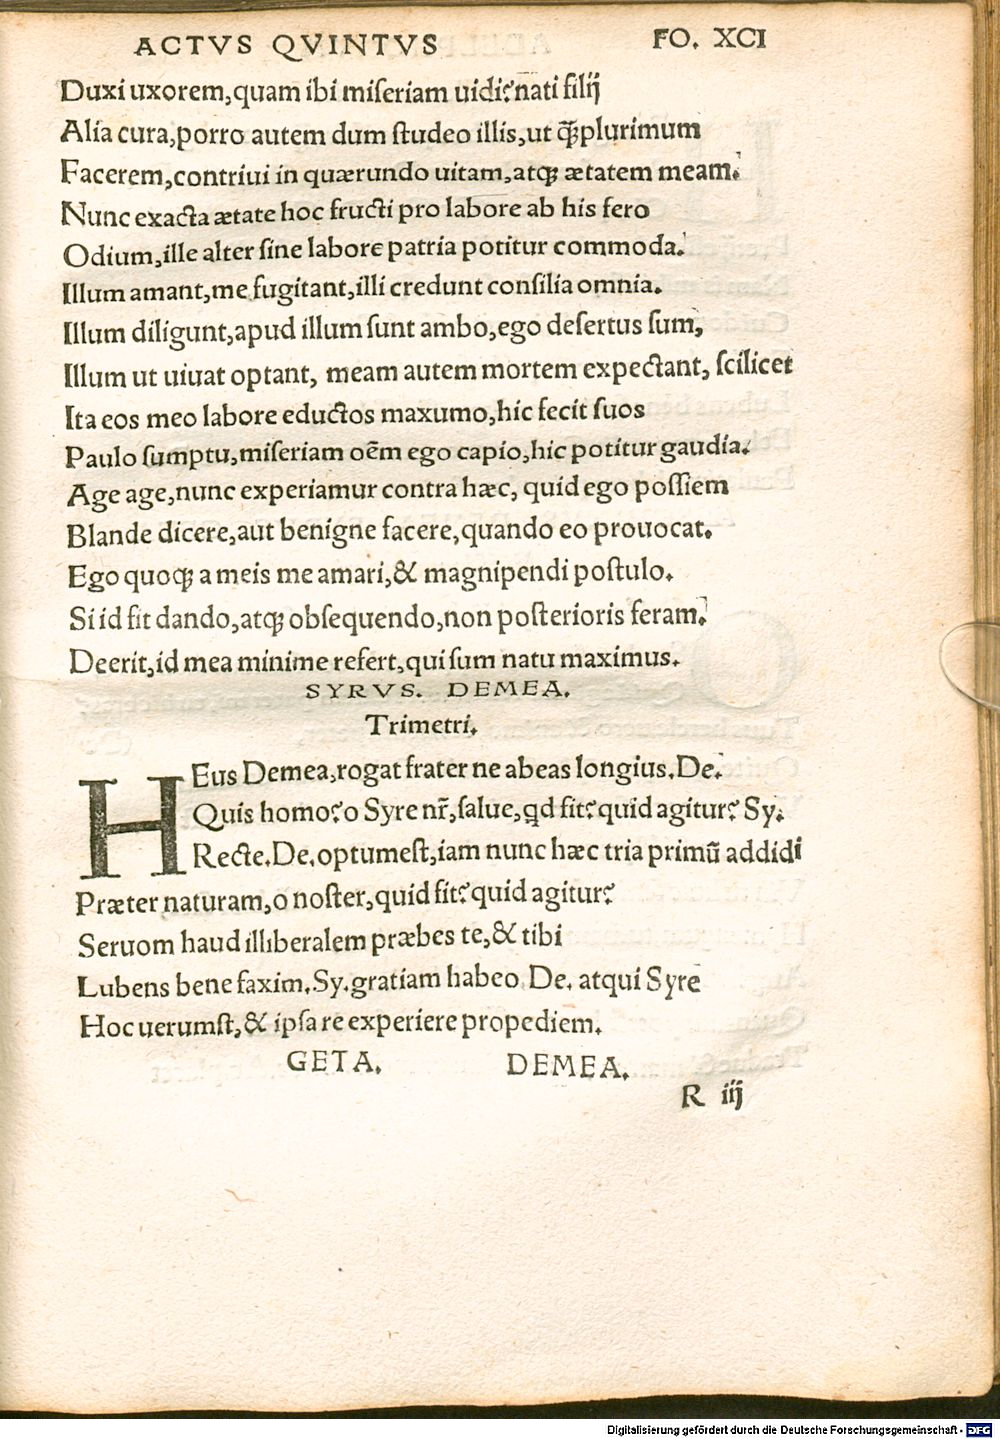 ACTVS QVINTVS FO. XCI
Duxi uxorem,quam ibi miſeriam uidi? nati filij
Alia cura,porro autem dum ſtudeo illis,ut q̃plurimum
Facerem,contriui in quærundo uitam,atqꝫ ætatem meam.
Nunc exacta ætate hoc fructi pro labore ab his fero
Odium,ille alter ſine labore patria potitur commoda.
Illum amant,me fugitant,illi credunt conſilia omnia.
Illum diligunt,apud illum ſunt ambo,ego deſertus ſum,
Illum ut uiuat optant, meam autem mortem expectant, ſcilicet
Ita eos meo labore eductos maxumo,hic fecit ſuos
Paulo ſumptu,miſeriam oēm ego capio,hic potitur gaudia.
Age age,nunc experiamur contra hæc, quid ego poſſiem
Blande dicere,aut benigne facere,quando eo prouocat.
Ego quoqꝫ a meis me amari,& magnipendi poſtulo.
Si id fit dando,atqꝫ obſequendo,non poſterioris feram.
Deerit,id mea minime refert,qui ſum natu maximus.
SYRVS. DEMEA.
Trimetri.
HEus Demea,rogat frater ne abeas longius.De.
Quis homo? o Syre nr̃,ſalue,qd fit? quid agitur? Sy.
Recte.De.optumeſt,iam nunc hæc tria primū addidi
Præter naturam,o noſter,quid fit? quid agitur?
Seruom haud illiberalem præbes te,& tibi
Lubens bene faxim.Sy.gratiam habeo De. atqui Syre
Hoc uerumſt,& ipſa re experiere propediem.
GETA. DEMEA.
R iij
Digitalisierung gefördert durch die Deutsche Forschungsgemeinschaft - DFG